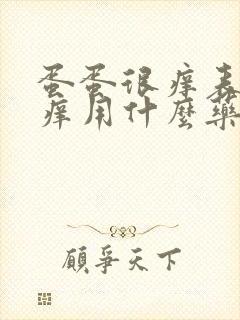 蛋蛋很痒表
痒用什麼藥
顧爭天下